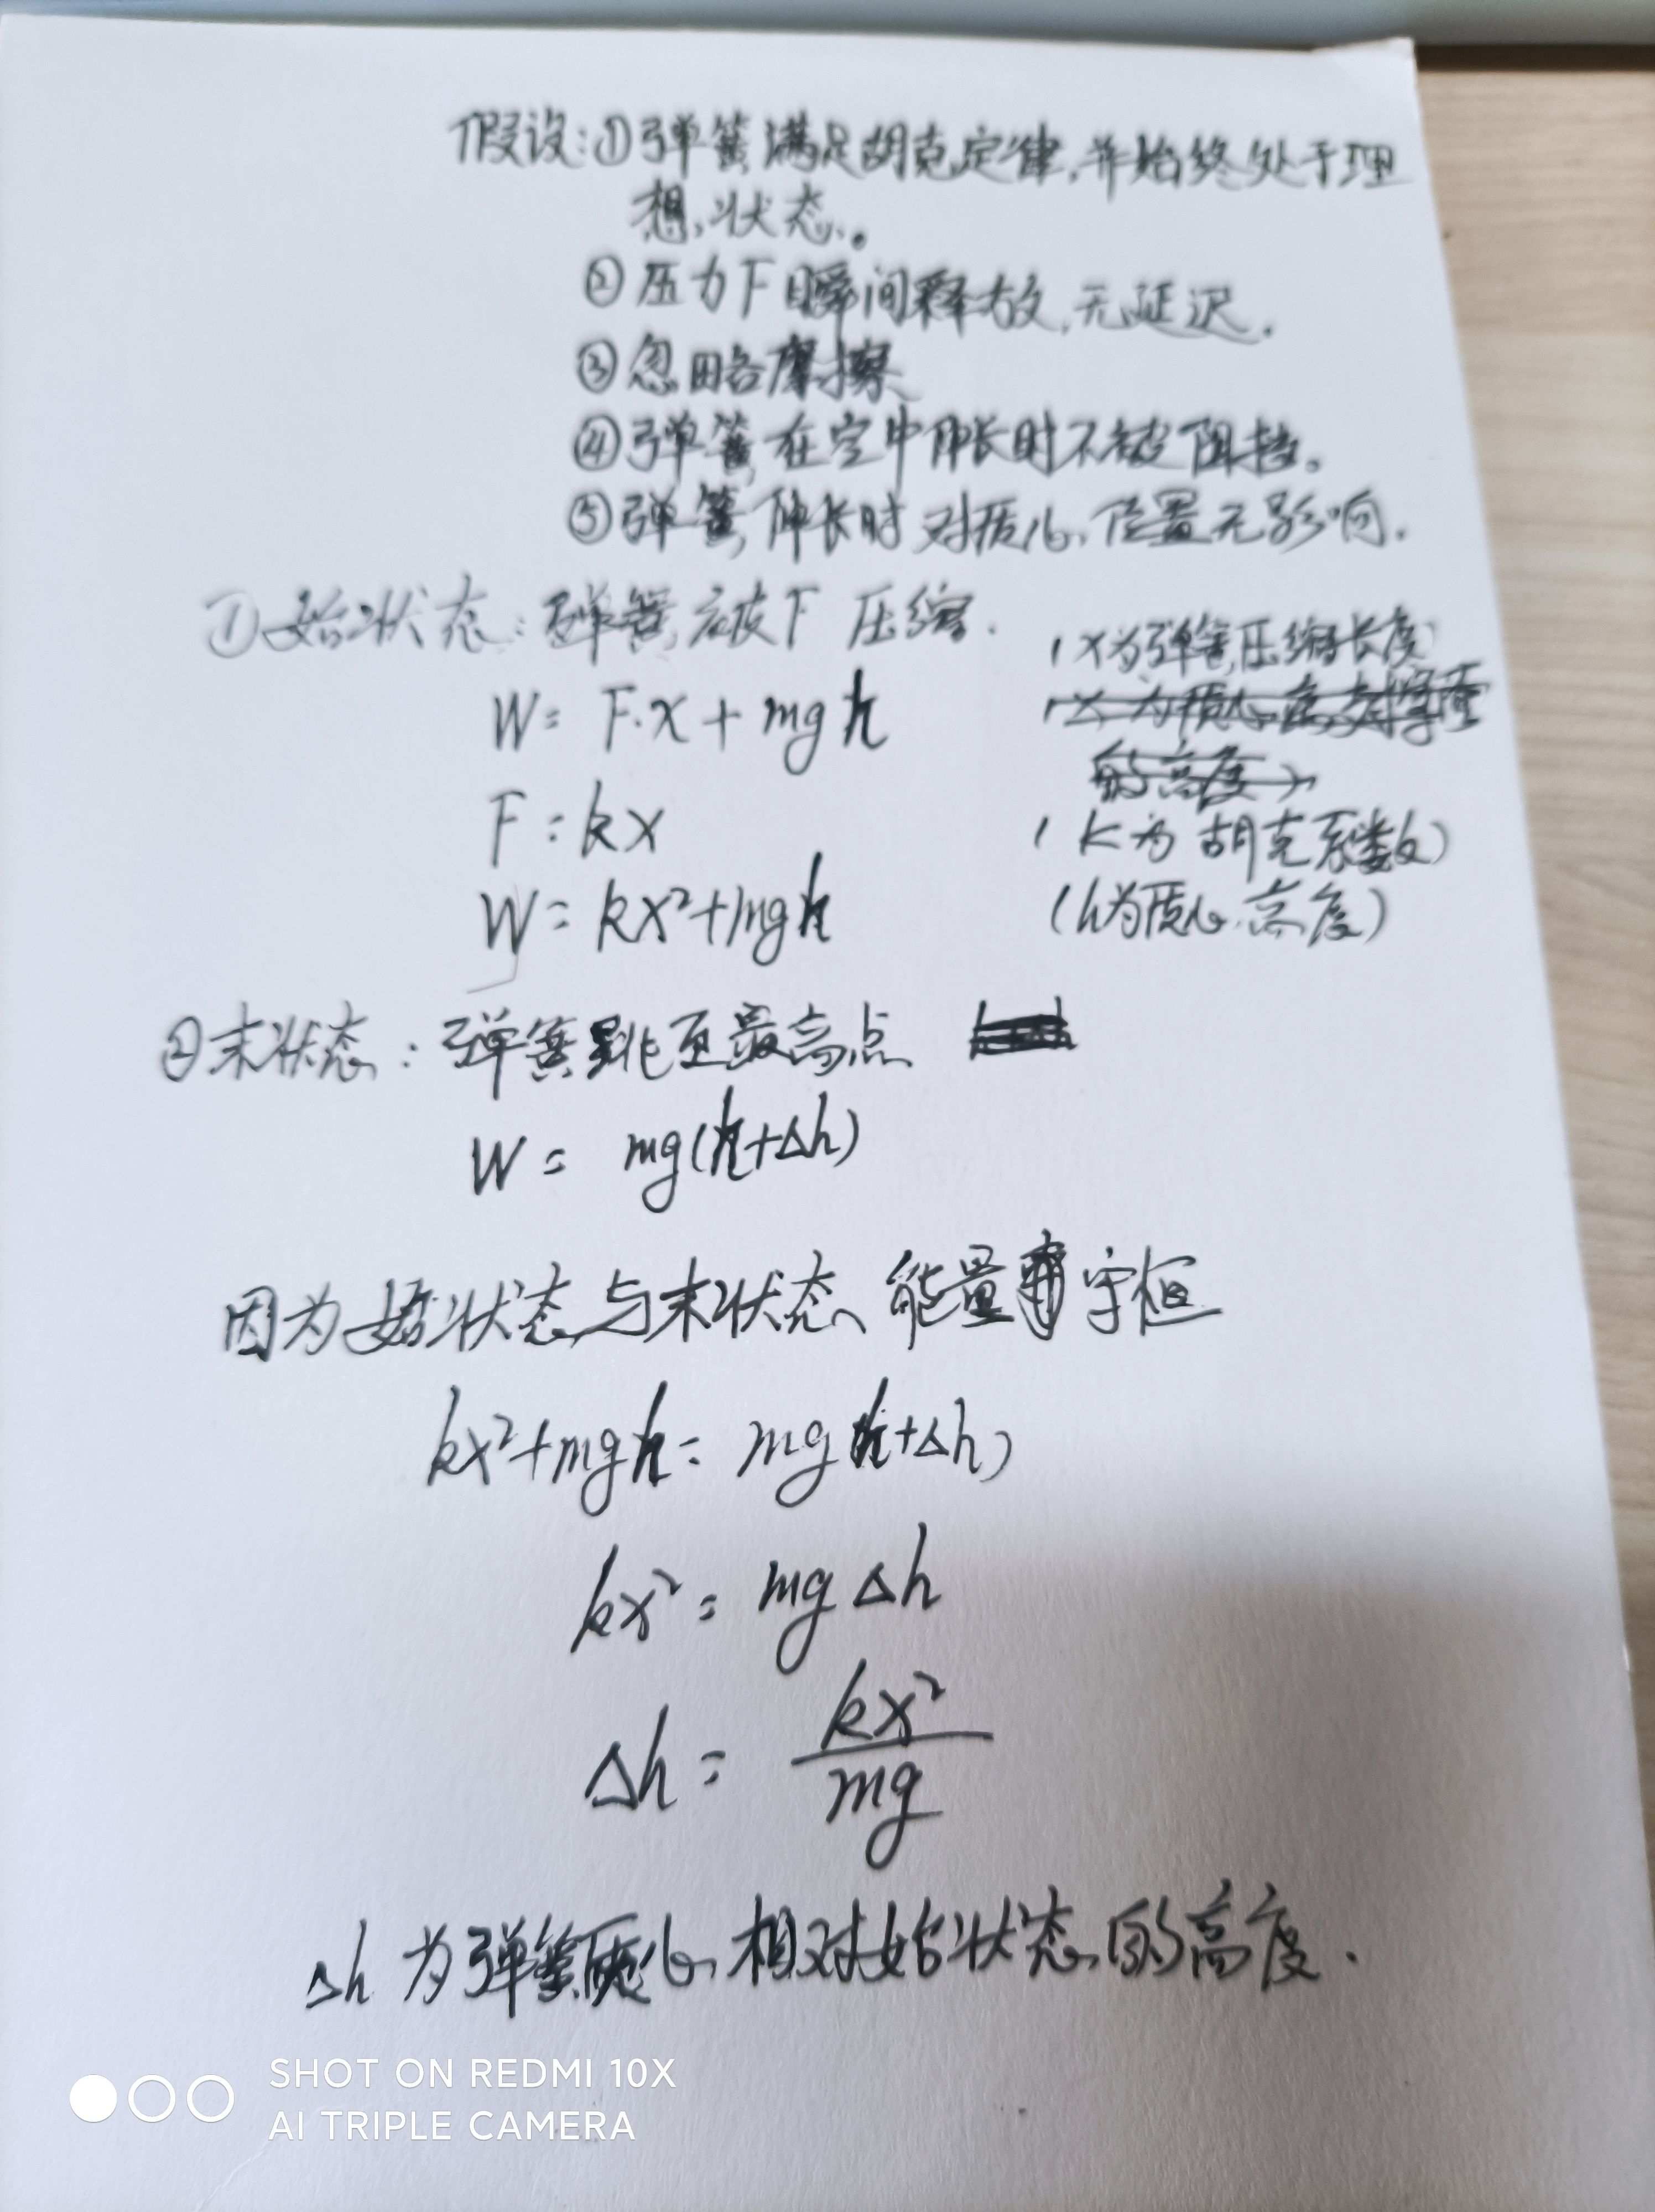 假设:①弹簧满足胡克定律,并始终处于理
想状态。
②压力F瞬间释放,无延迟.
③忽略摩擦
④弹簧在空中伸长时不被阻挡.
⑤弹簧伸长时对质心位置无影响.
①始状态:弹簧被F压缩.
(x为弹簧压缩长度
W= F·x+mgh
F=kx
(k为胡克系数)
W=kx²+mgh
(h为质心高度)
②末状态:弹簧跳至最高点
W= mg(h+Δh)
因为始状态与末状态能量守恒
kx²+mgh=mg(h+Δh)
kx²=mgΔh
Δh= kx²/mg
Δh为弹簧质心相对始状态的高度.
SHOT ON REDMI 10X
AI TRIPLE CAMERA